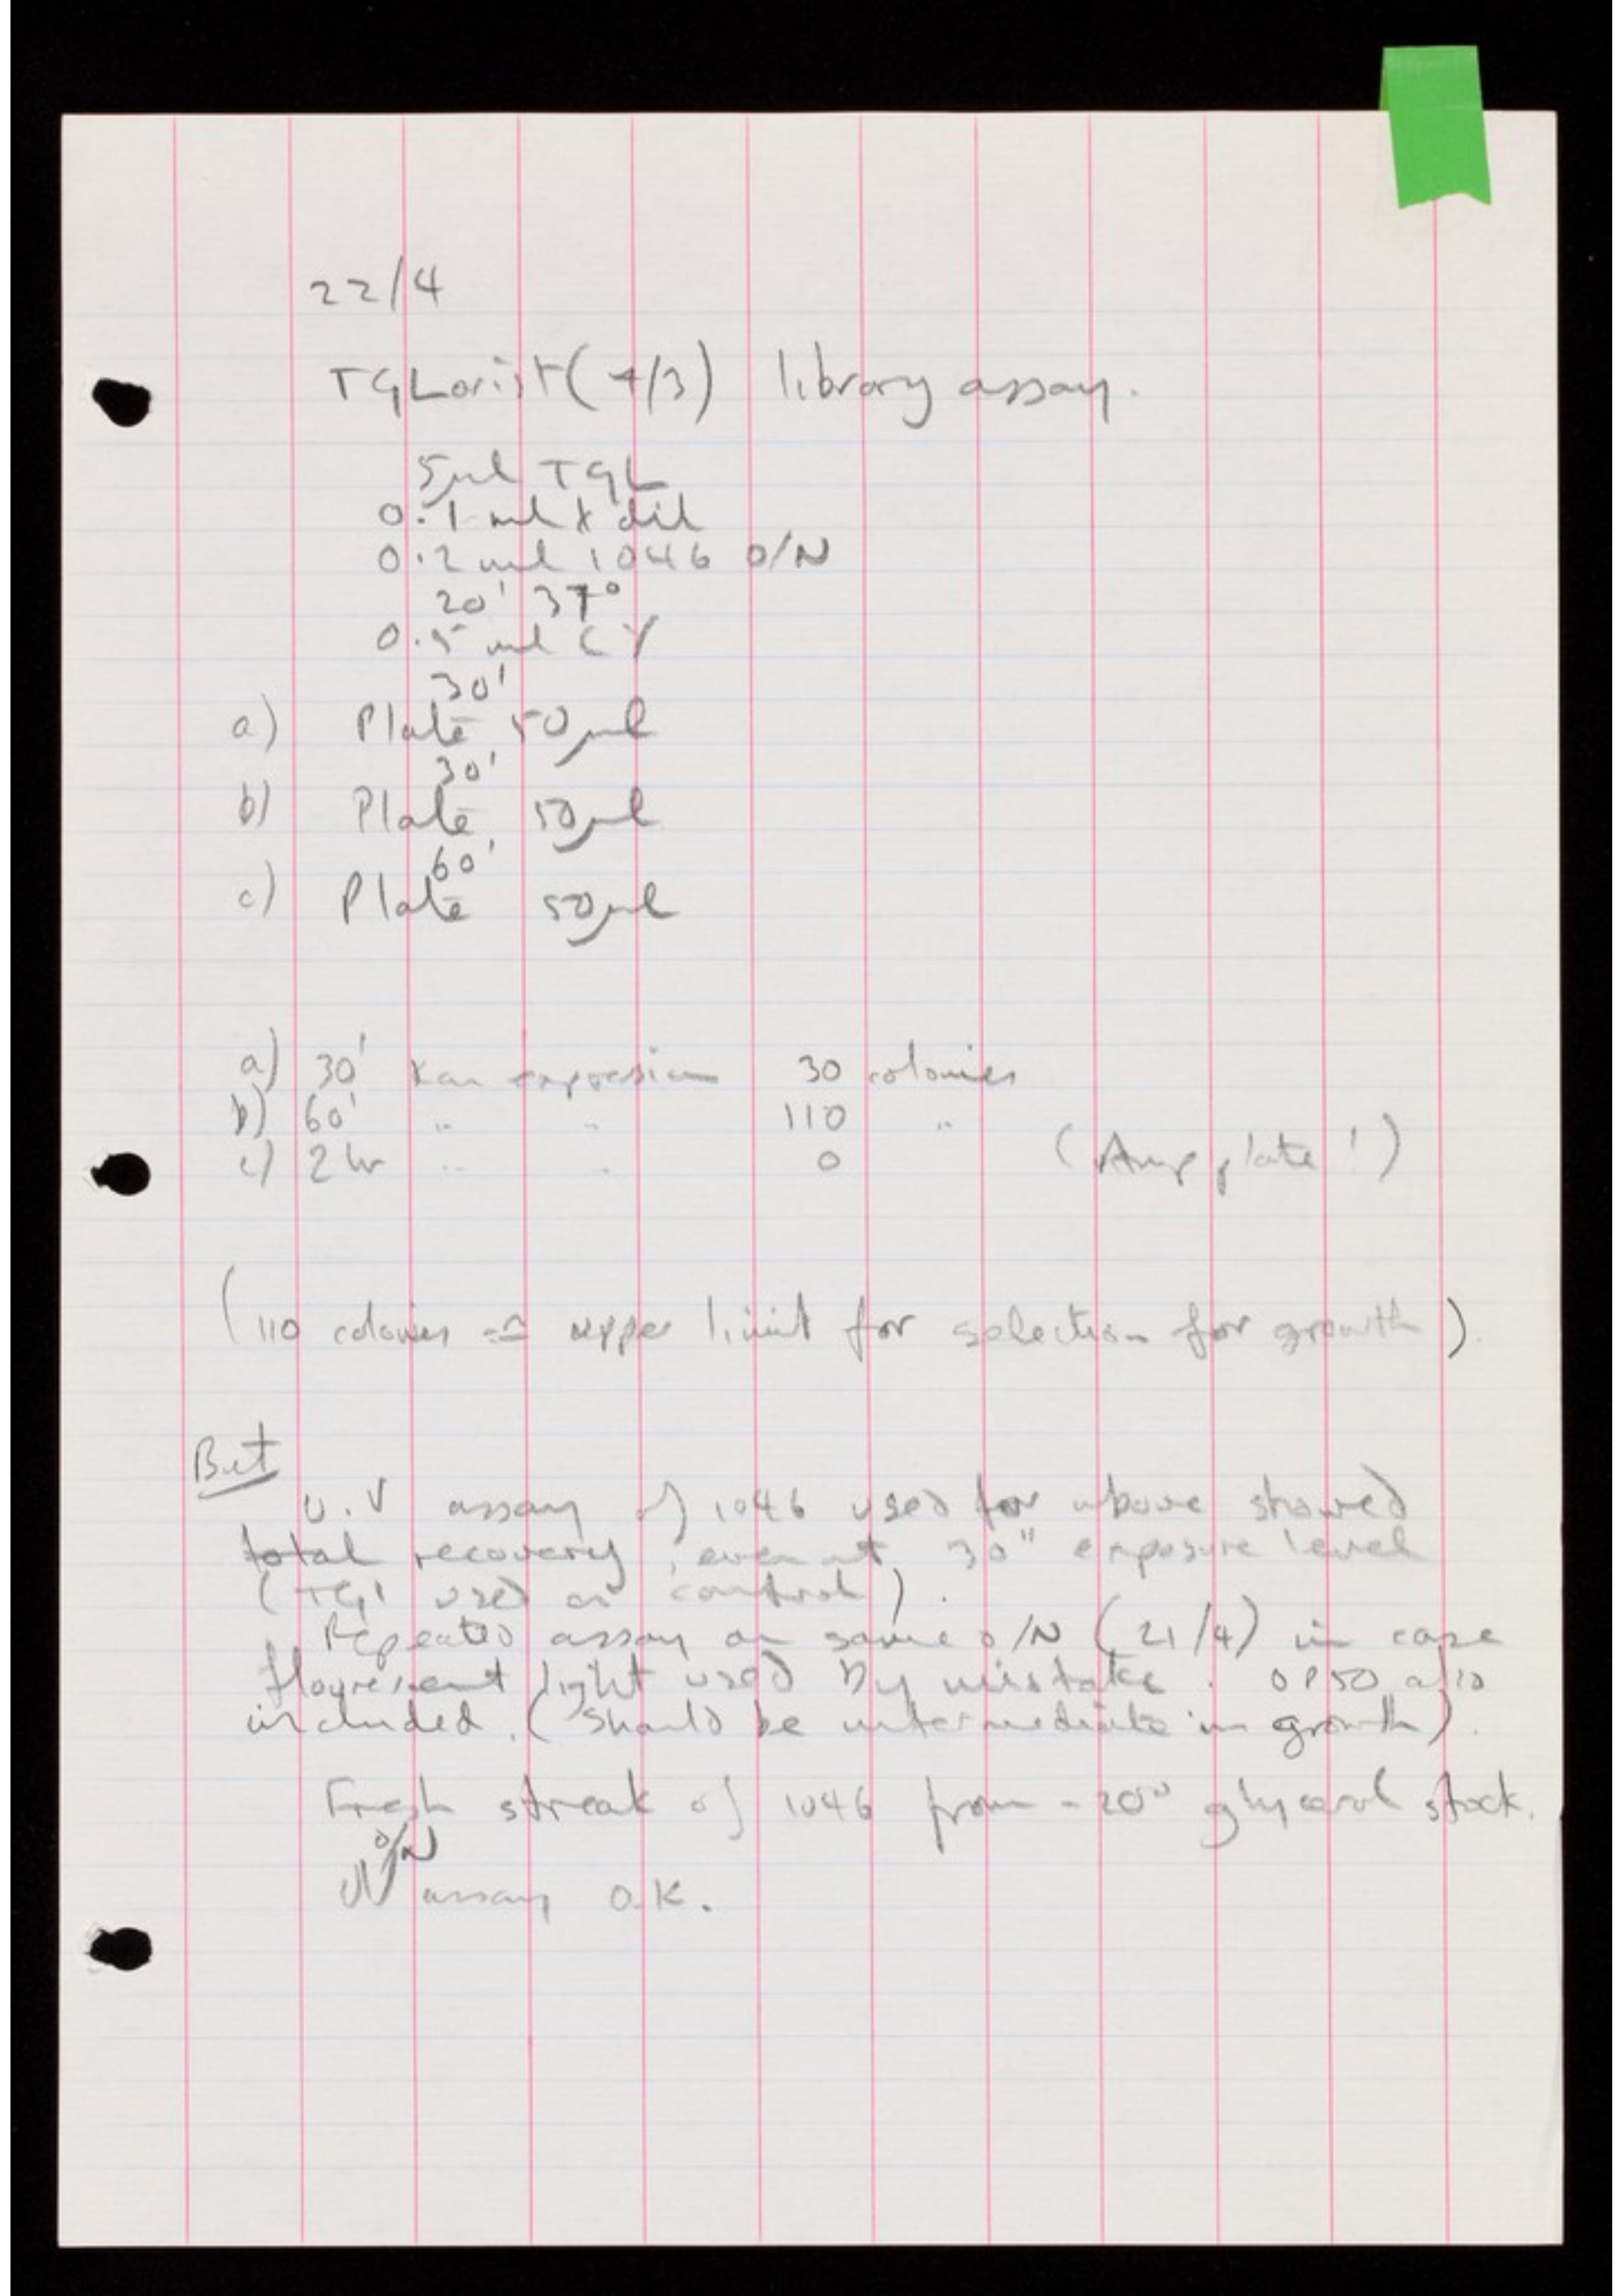 22/4
TG Lorist (4/3) library assay.
5µl TGL
0.1 ml λ dil
0.2 ml 1046 O/N
20' 37°
0.5 ml CY
30'
a) Plate 50µl
30'
b) Plate 50µl
60'
c) Plate 50µl
a) 30' Kan expression 30 colonies
b) 60' " " 110 "
c) 2 hr " " 0 (Amp plate!)
(110 colonies ≃ upper limit for selection for growth)
But
U.V assay of 1046 used for above showed
total recovery, even at 30" exposure level
(TG1 used as control).
Repeated assay on same O/N (21/4) in case
flourescent light used by mistake. OP50 also
included. (Should be intermediate in growth).
Fresh streak of 1046 from -20° glycerol stock.
O/N
UV assay O.K.